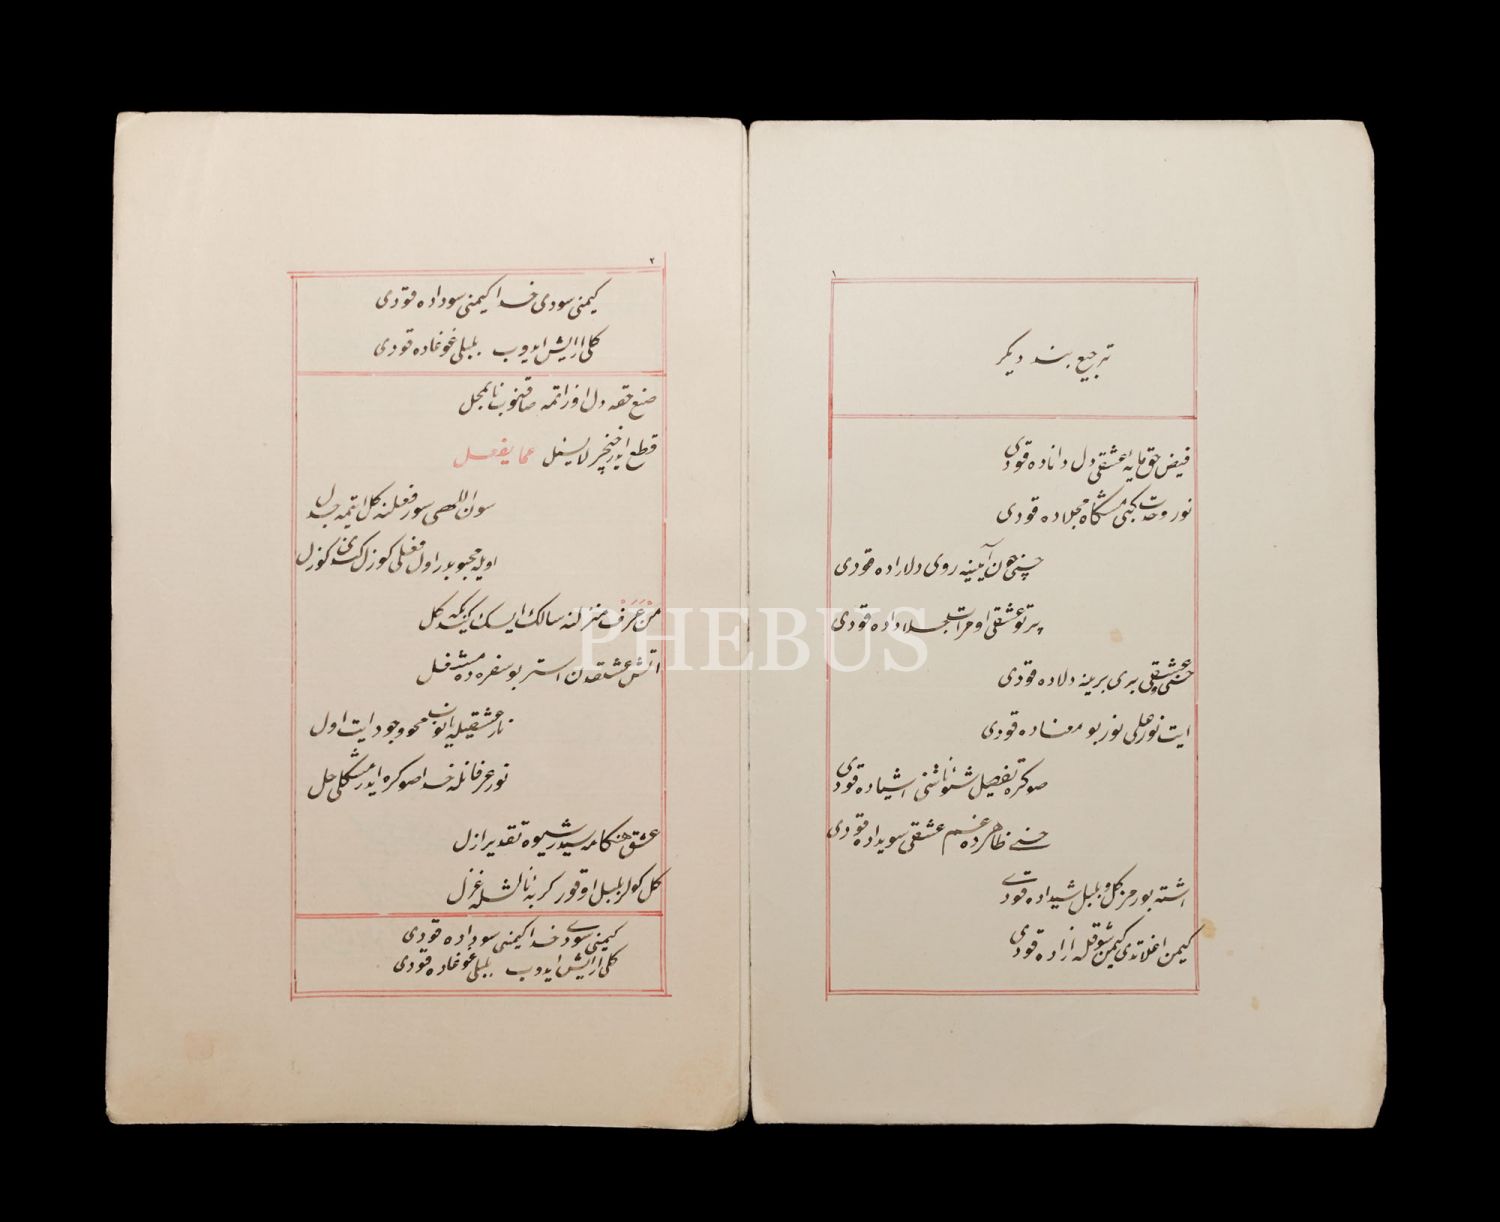 ١
ترجیع بند دیکر
فیض حق مایه عشقی دل داناده قودی
نور وحدت کبی مشکاة مجلاده قودی
حسنی چون آیینه روی دلاراده قودی
پرتو عشقی او مرات جلاداده قودی
حسن و عشقی بری برینه دلاده قودی
ایت نور علی نور بو معناده قودی
صوکره تفصیل شئوناتنی اشیاده قودی
حسنی ظاهرده غم عشقی سویداده قودی
اشته بو رمز کل و بلبل شیداده قودی
کیمن اغلاتدی کیمن شوقله ازاده قودی
٢
کیمنی سودی خدا کیمنی سوداده قودی
کلی ارایش ایدوب بلبلی غوغاده قودی
صنع حقه دل اوزاتمه صاقنوب نابمحل
قطع ایدر خنجر لایسئل عما یفعل
سون اللهی سور فعلنه کل ایتمه جدل
اویله محبوبدر اول فعلی کوزل کندی کوزل
من عرف منزلنه سالک ایسک یکه کل
اتش عشقدن استر بو سفرده مشعل
نار عشقیله انوب محو وجود ایت اول
نور عرفانله خدا صوکره ایدر مشکلی حل
عشق هنکامه سیدر شیوه تقدیر ازل
کل کولر بلبل اوقور کریه نالشله غزل
کیمنی سودی خدا کیمنی سوداده قودی
کلی ارایش ایدوب بلبلی غوغاده قودی
PHEBUS